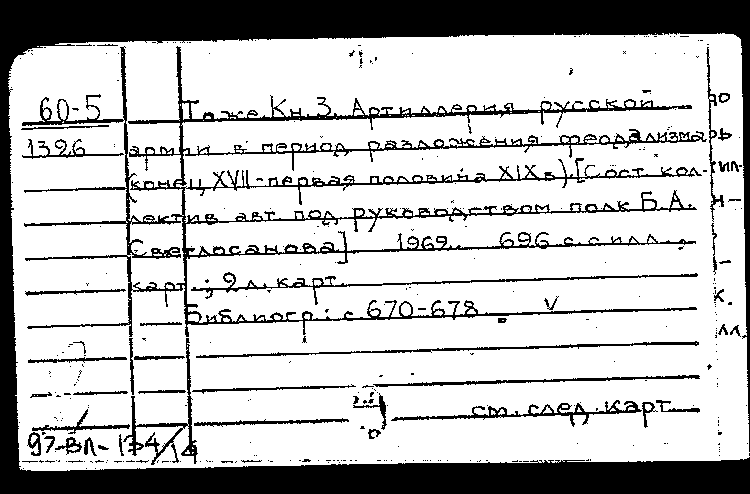 60-5 То же. Кн. 3. Артиллерия русской
1326 армии в период разложения феодализма
(конец XVII - первая половина XIX в) [Сост кол-
лектив авт под руководством полк Б.А.
Светлосанова] 1969. 696 с. с илл.,
карт.; 2 л. карт.
Библиогр: с 670-678 V
см. след. карт